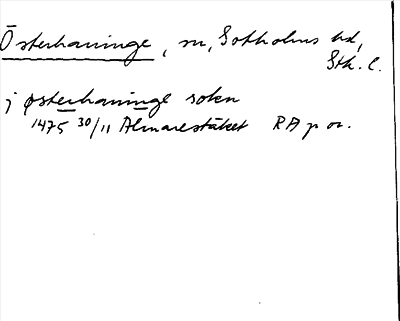 Österhaninge, sn, Sotholms hd,
Sth. l.
j østerhaninge sokn
1475 30/11 Almarestäket RA p or.